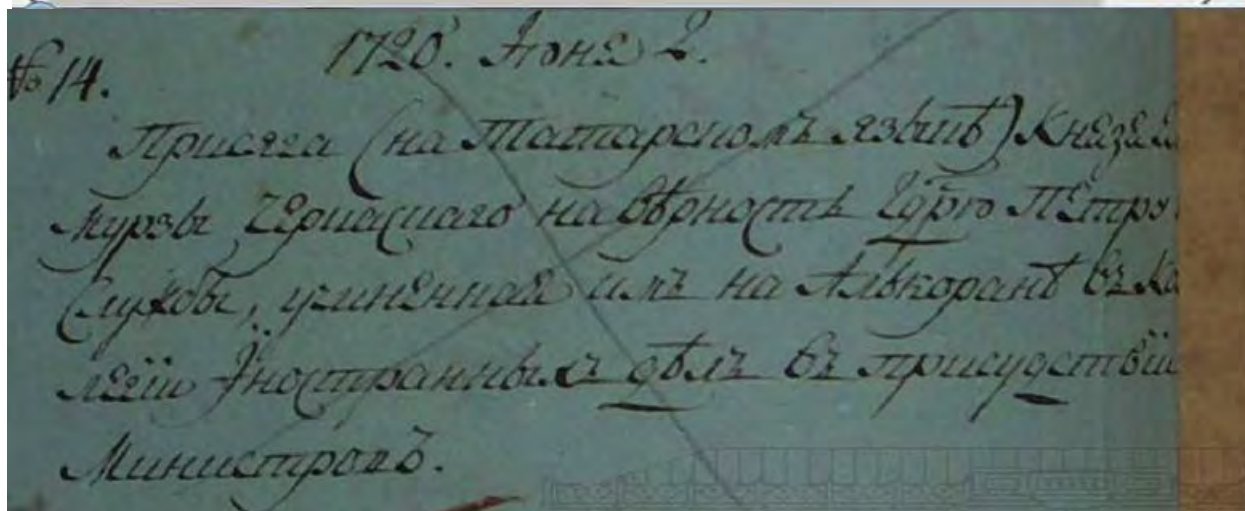 № 14.
1720. Июня 2.
Присяга (на Татарскомъ языкѣ) Князя
мурзы Черкаскаго на вѣрность Гдрю Петру
службы, учиненная имъ на Алькоранѣ въ Ко
легіи Иностранныхъ дѣлъ въ присудствіи
Министровъ.